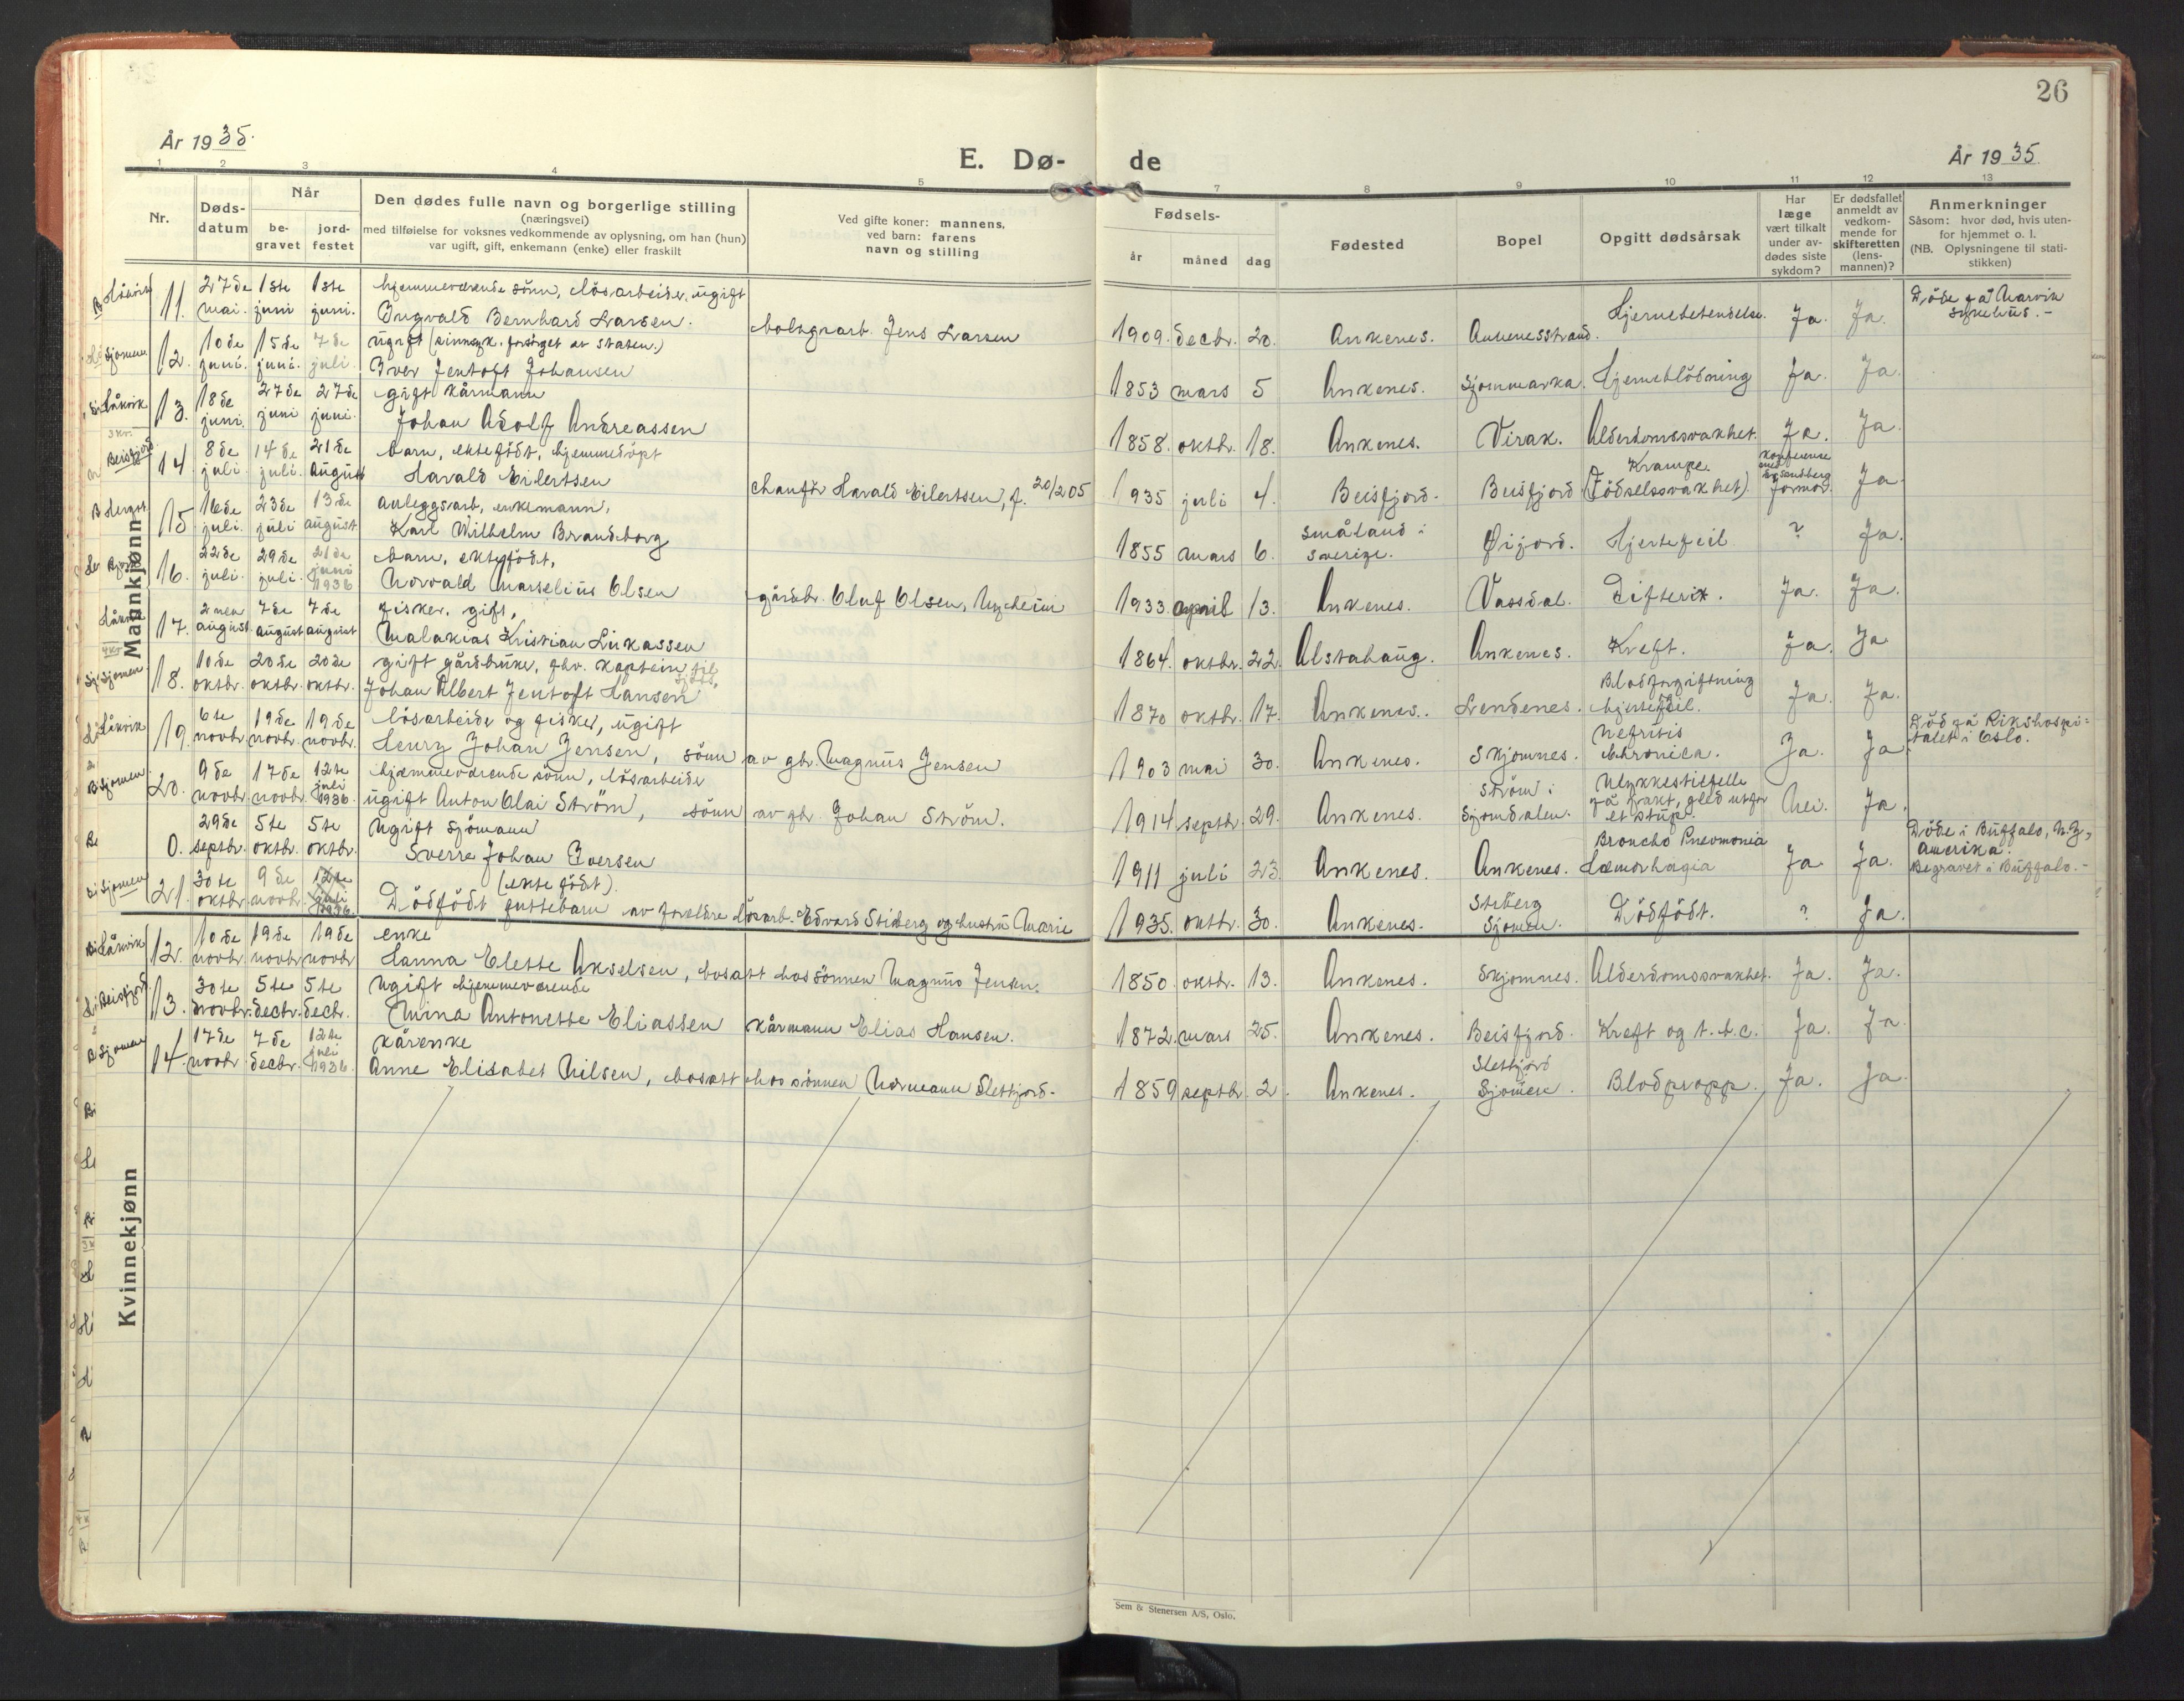 26
År 1935.
E. Dø-
de
År 1935
1 2 3 4 5
7 8 9 10 11 12 13
Nr.
Døds-
datum
Når
be-
gravet
jord-
festet
Den dødes fulle navn og borgerlige stilling
(næringsvei)
med tilføielse for voksnes vedkommende av oplysning, om han (hun)
var ugift, gift, enkemann (enke) eller fraskilt
Ved gifte koner: mannens,
ved barn: farens
navn og stilling
Fødsels-
år
måned
dag
Fødested
Bopel
Opgitt dødsårsak
Har
læge
vært tilkalt
under av-
dødes siste
sykdom?
Er dødsfallet
anmeldt av
vedkom-
mende for
skifteretten
(lens-
mannen)?
Anmerkninger
Såsom: hvor død, hvis uten-
for hjemmet o. l.
(NB. Oplysningene til stati-
stikken)
Mannkjønn
Håkvik 11. 27de mai. 1ste juni 1ste juni. hjemmeværende sönn, lösarbeider, ugift
Ingvald Bernhard Larsen. Jens Larsen 1909. decbr. 20. Ankenes. Ankenesstrand. Hjernebetendelse. Ja. Ja. Döde på Narvik
sykehus.-
Sjomen 12. 10de juni. 15de juni. 7de juli. ugift (sinnsyk. forsörget av staten.)
Iver Jentoft Johansen 1853 mars 5 Ankenes. Sjommarka. Hjerneblödning Ja. Ja.
Håkvik 13. 18de juni. 27de juni 27de juni. gift kårmann
Johan Adolf Andreassen 1858. oktbr. 18. Ankenes. Virak. Alderdomssvakhet. Ja. Ja.
3 kr.
Beisfjord. 14. 8de juli. 14de juli. 21de august barn, ektefödt, hjemmedöpt
Harald Eilertsen chauför Harald Eilertsen, f. 20/2 05 1935 juli 4. Beisfjord. Beisfjord Krampe.
(Födselssvakhet). Ja.
15. 16de juli. 23de juli 13de august anleggsarb, enkemann,
Karl Wilhelm Brandborg 1855 mars 6. Småland i
Sverige. Öijord. Hjertefeil ? Ja.
16. 22de juli. 29de juli. 21de juni 1936 barn, ektefödt,
Norvald Marselius Olsen gårdbr. Oluf Olsen, Nyheim 1933. april 13. Ankenes. Vassdal. Difteri. Ja. Ja.
Håkvik 17. 2nen august 7de august 7de august fisker, gift,
Malakias Kristian Lukassen 1864. oktbr. 22. Alstahaug. Ankenes. Kreft. Ja. Ja
4 kr.
Sjomen 18. 10de oktbr. 20de oktbr. 20de oktbr. gift gårdbruker, fhv. kaptein til sjöss,
Johan Albert Jentoft Hansen 1870 oktbr. 17. Ankenes. Lendenes. Blodforgiftning
hjertefeil. Ja. Ja.
Håkvik 19. 6te novbr. 19de novbr. 19de novbr. lösarbeider og fisker, ugift
Henry Johan Jensen, sönn av gbr. Magnus Jensen 1903 mai 30. Ankenes. Skjomnes. Nefritis
chronica. Ja. Ja Död på Rikshospi-
talet i Oslo.
Sjomen 20. 9de novbr. 17de novbr. 12te juli 1936. hjemmeværende sönn, lösarbeide
ugift Anton Olai Ström, sönn av gbr. Johan Ström. 1914 septbr. 29. Ankenes. Ström i
Sjomdalen. Ulykkestilfelle
på jakt, gled utfor
et stup. Nei. Ja.
0. 29de septbr. 5te oktbr. 5te oktbr. Ugift sjömann
Sverre Johan Iversen 1911 juli 23. Ankenes. Ankenes. Broncho Pneumonia
Hæmorhagia Ja. Ja. Döde i Buffalo, N.Y.,
Amerika.
Begravet i Buffalo.-
Sjomen 21. 30te oktbr. 9de novbr. 12te juli 1936. (ekte födt).
Dödfödt guttebarn av foreldre lösarb. Edvard Stiberg og hustru Marie 1935. oktbr. 30. Ankenes. Stiberg
Sjomen. Dödfödt. ? Ja.
Kvinnekjønn
Håkvik 12. 10de novbr. 19de novbr. 19de novbr enke
Hanna Elette Akselsen, bosatt hos sönnen Magnus Jensen. 1850. oktbr. 13. Ankenes. Skjomnes. Alderdomssvakhet. Ja. Ja.
Beisfjord 13. 30te novbr. 5te decbr. 5te decbr. Ugift hjemmeværende
Mina Antonette Eliassen kårmann Elias Hansen. 1872. mars 25. Ankenes. Beisfjord. Kreft og t.b.c. Ja. Ja
Sjomen 14. 17de novbr. 7de decbr. 12te juli 1936. kårenke
Anne Elisabet Nilsen, bosatt hos sönnen Normann Slettfjord. 1859 septbr. 2. Ankenes. Slettfjord
Sjomen. Blodpropp. Ja. Ja.
Sem & Stenersen A/S, Oslo.